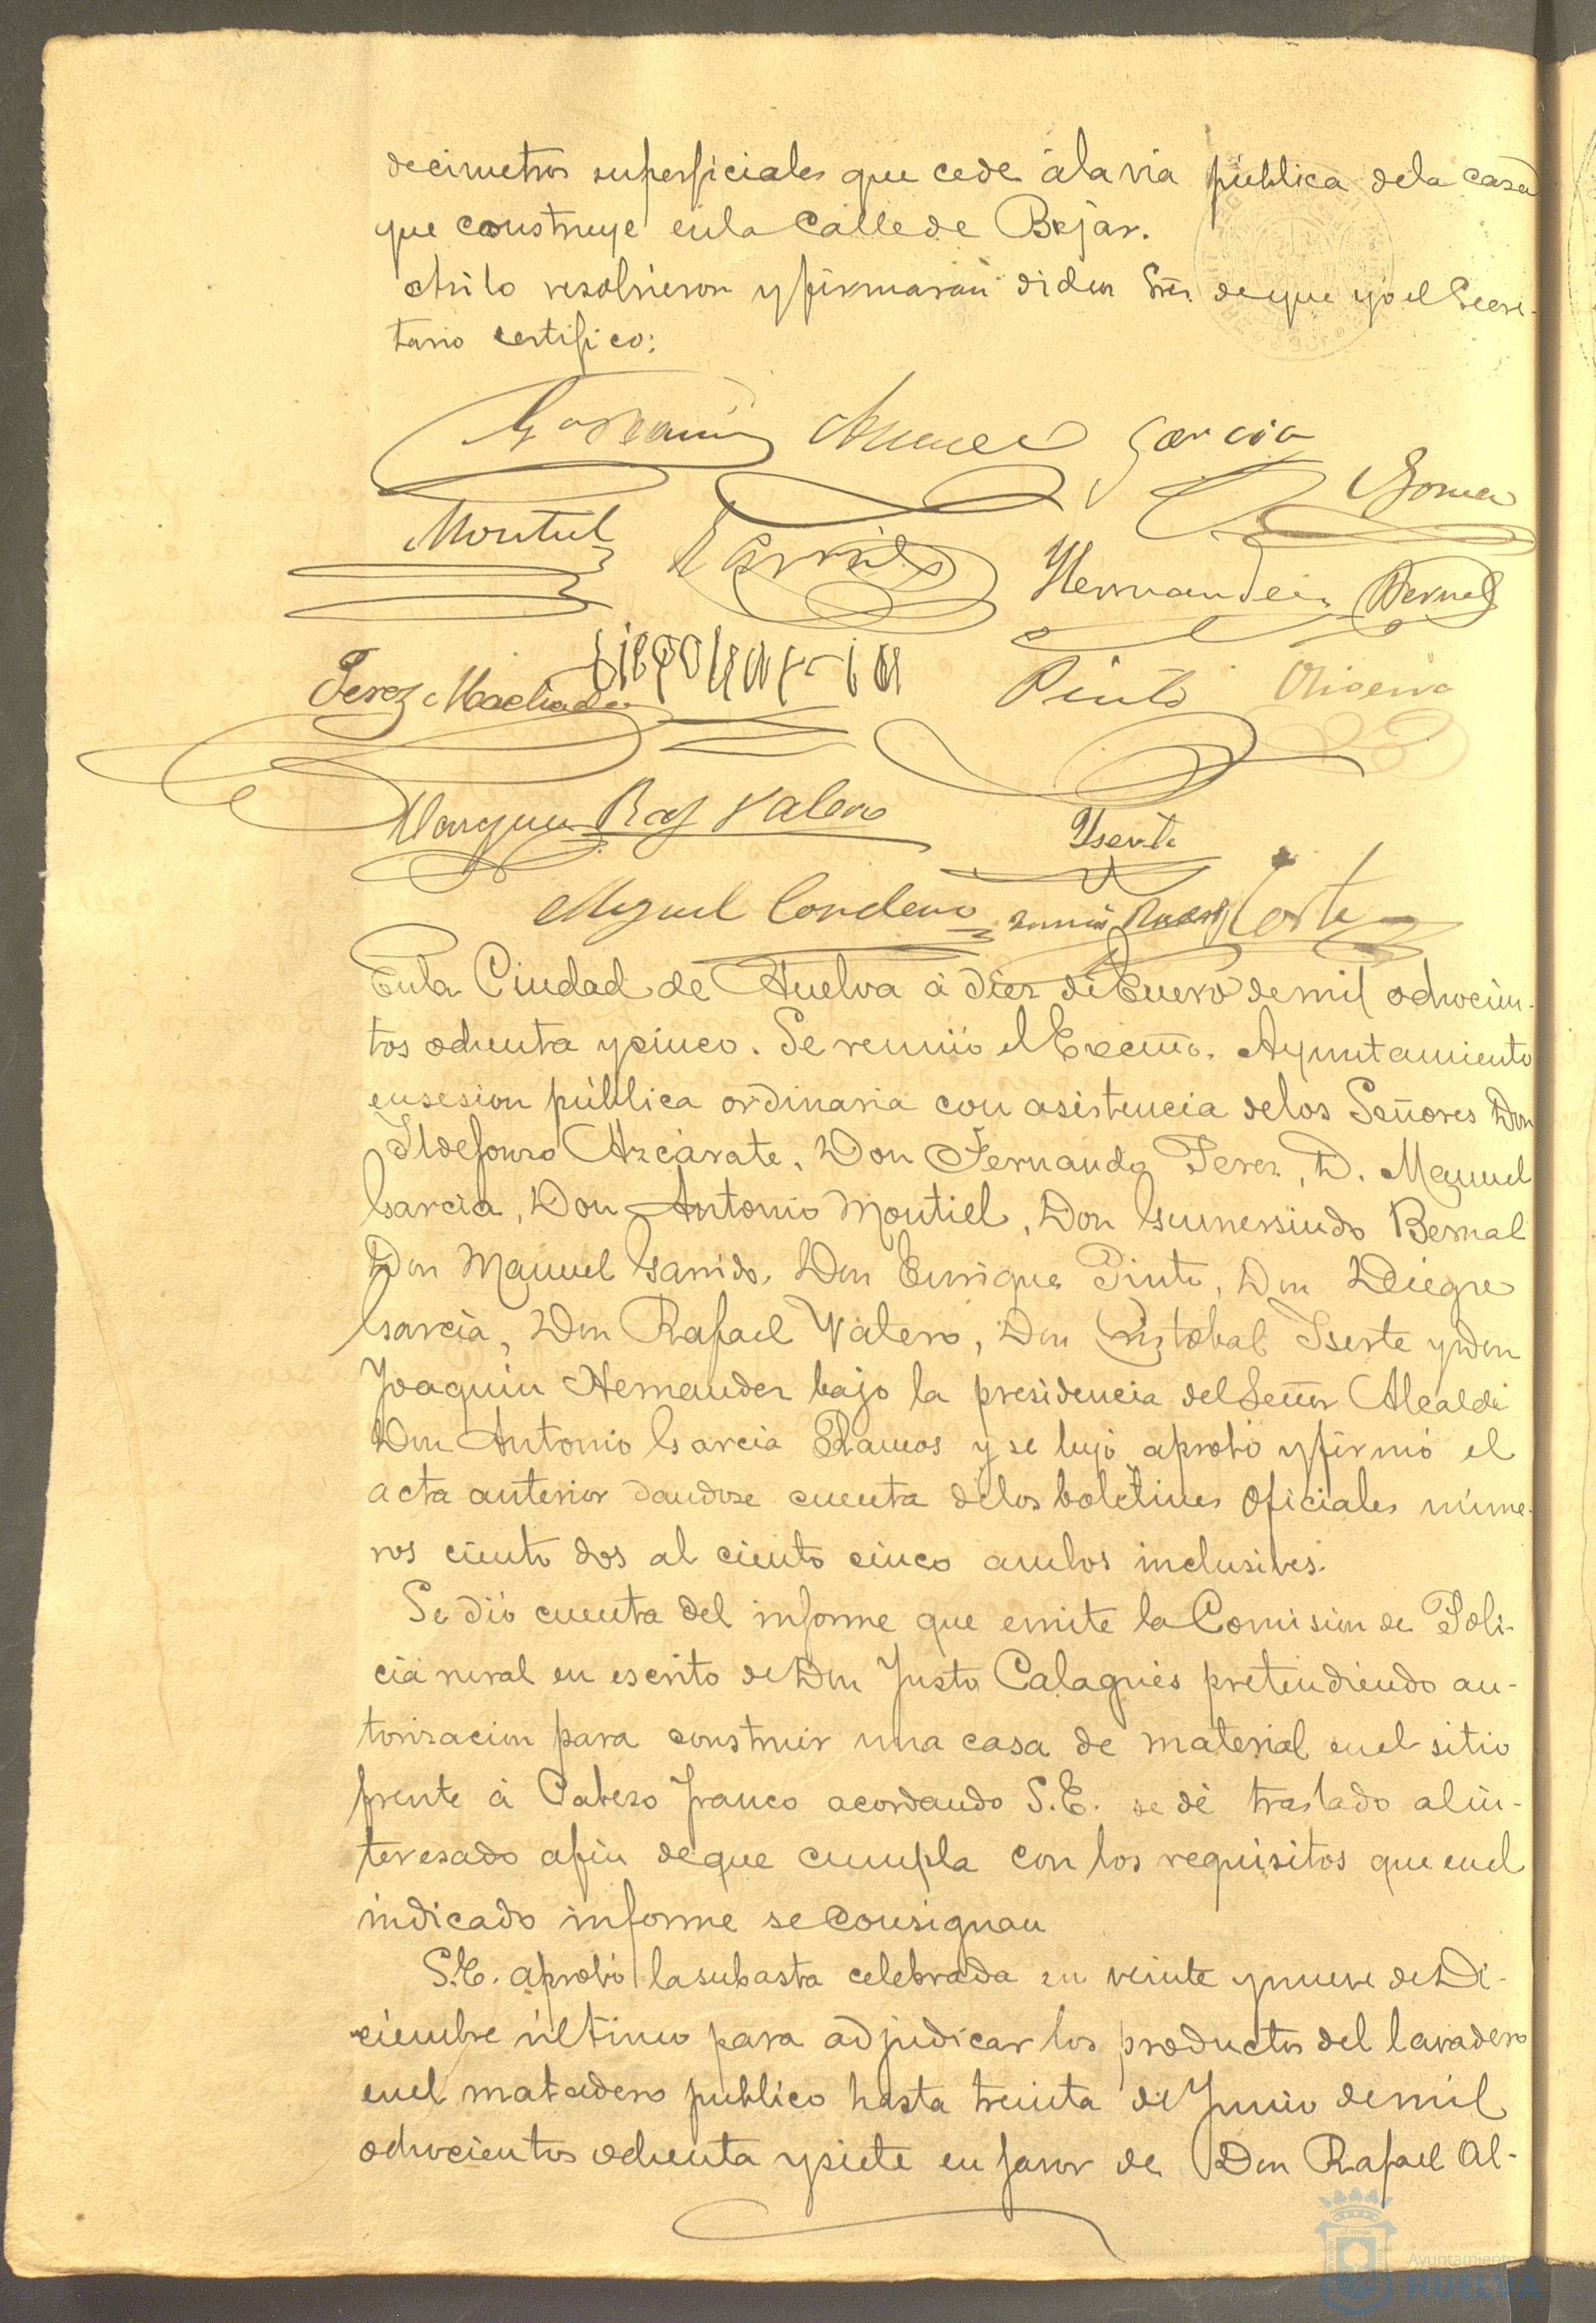 decimetros superficiales que cede á la via pública de la casa
que construye en la Calle de Bejar.
Asi lo resolvieron y firmaran dichos Sres. de que yo el Secre-
tario certifico:
Garcia
Gomez
Montiel Garrido Hernandez Bernal
Perez Machado Diego Garcia Pinto Oliveira
Marquez Raf Valero Yserte
Miguel Cordero Corte
En la Ciudad de Huelva á diez de Enero de mil ochocien-
tos ochenta y cinco. Se reunió el Excmo. Ayuntamiento
en sesion pública ordinaria con asistencia de los Señores Don
Ildefonso Azcárate, Don Fernando Perez, D. Manuel
Garcia, Don Antonio Montiel, Don Gumersindo Bernal
Don Manuel Garrido, Don Enrique Pinto, Don Diego
Garcia, Don Rafael Valero, Don Cristobal Yserte y Don
Joaquin Hernandez bajo la presidencia del Señor Alcalde
Don Antonio Garcia Ramos y se leyó aprobó y firmó el
acta anterior dandose cuenta de los boletines oficiales núme-
ros ciento dos al ciento cinco ambos inclusives.
Se dió cuenta del informe que emite la Comision de Poli-
cia rural en escrito de Don Justo Calagués pretendiendo au-
torizacion para construir una casa de material en el sitio
frente á Cabezo franco acordando S.E. se dé traslado al in-
teresado afin de que cumpla con los requisitos que en el
indicado informe se consignan
S.E. aprobó la subasta celebrada en veinte y nueve de Di-
ciembre último para adjudicar los productos del lavadero
en el matadero publico hasta treinta de Junio de mil
ochocientos ochenta y siete en favor de Don Rafael Al-
Ayuntamiento
HUELVA